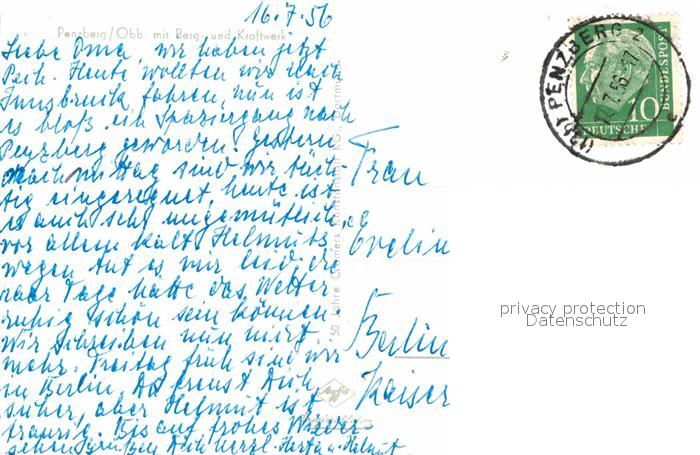 16.7.56
Penzberg/Obb. mit Berg- und Kraftwerk
Liebe Oma, wir haben jetzt
Pech. Heute wollten wir nach
Innsbruck fahren, nun ist
es bloß ein Spaziergang nach
Penzberg geworden. Gestern
Nachmittag sind wir tüch-
tig eingeregnet, heute ist
es auch sehr ungemütlich,
vor allem kalt. Helmuts
wegen tut es mir leid, die
paar Tage hätte das Wetter
ruhig schön sein können.
Wir schreiben nun nicht
mehr. Freitag früh sind wir
in Berlin. Du freust Dich
sicher, aber Helmut ist
traurig. Bis auf frohes Wieder-
sehen grüßen Dich herzl. Herta u. Helmut
50 Jahre Cramers Kunstanstalt KG., Dortmund
Frau
Evelin
Berlin
Kaiser
Agfa
(13b) PENZBERG 2
17.7.56
10
DEUTSCHE
BUNDESPOST
privacy protection
Datenschutz